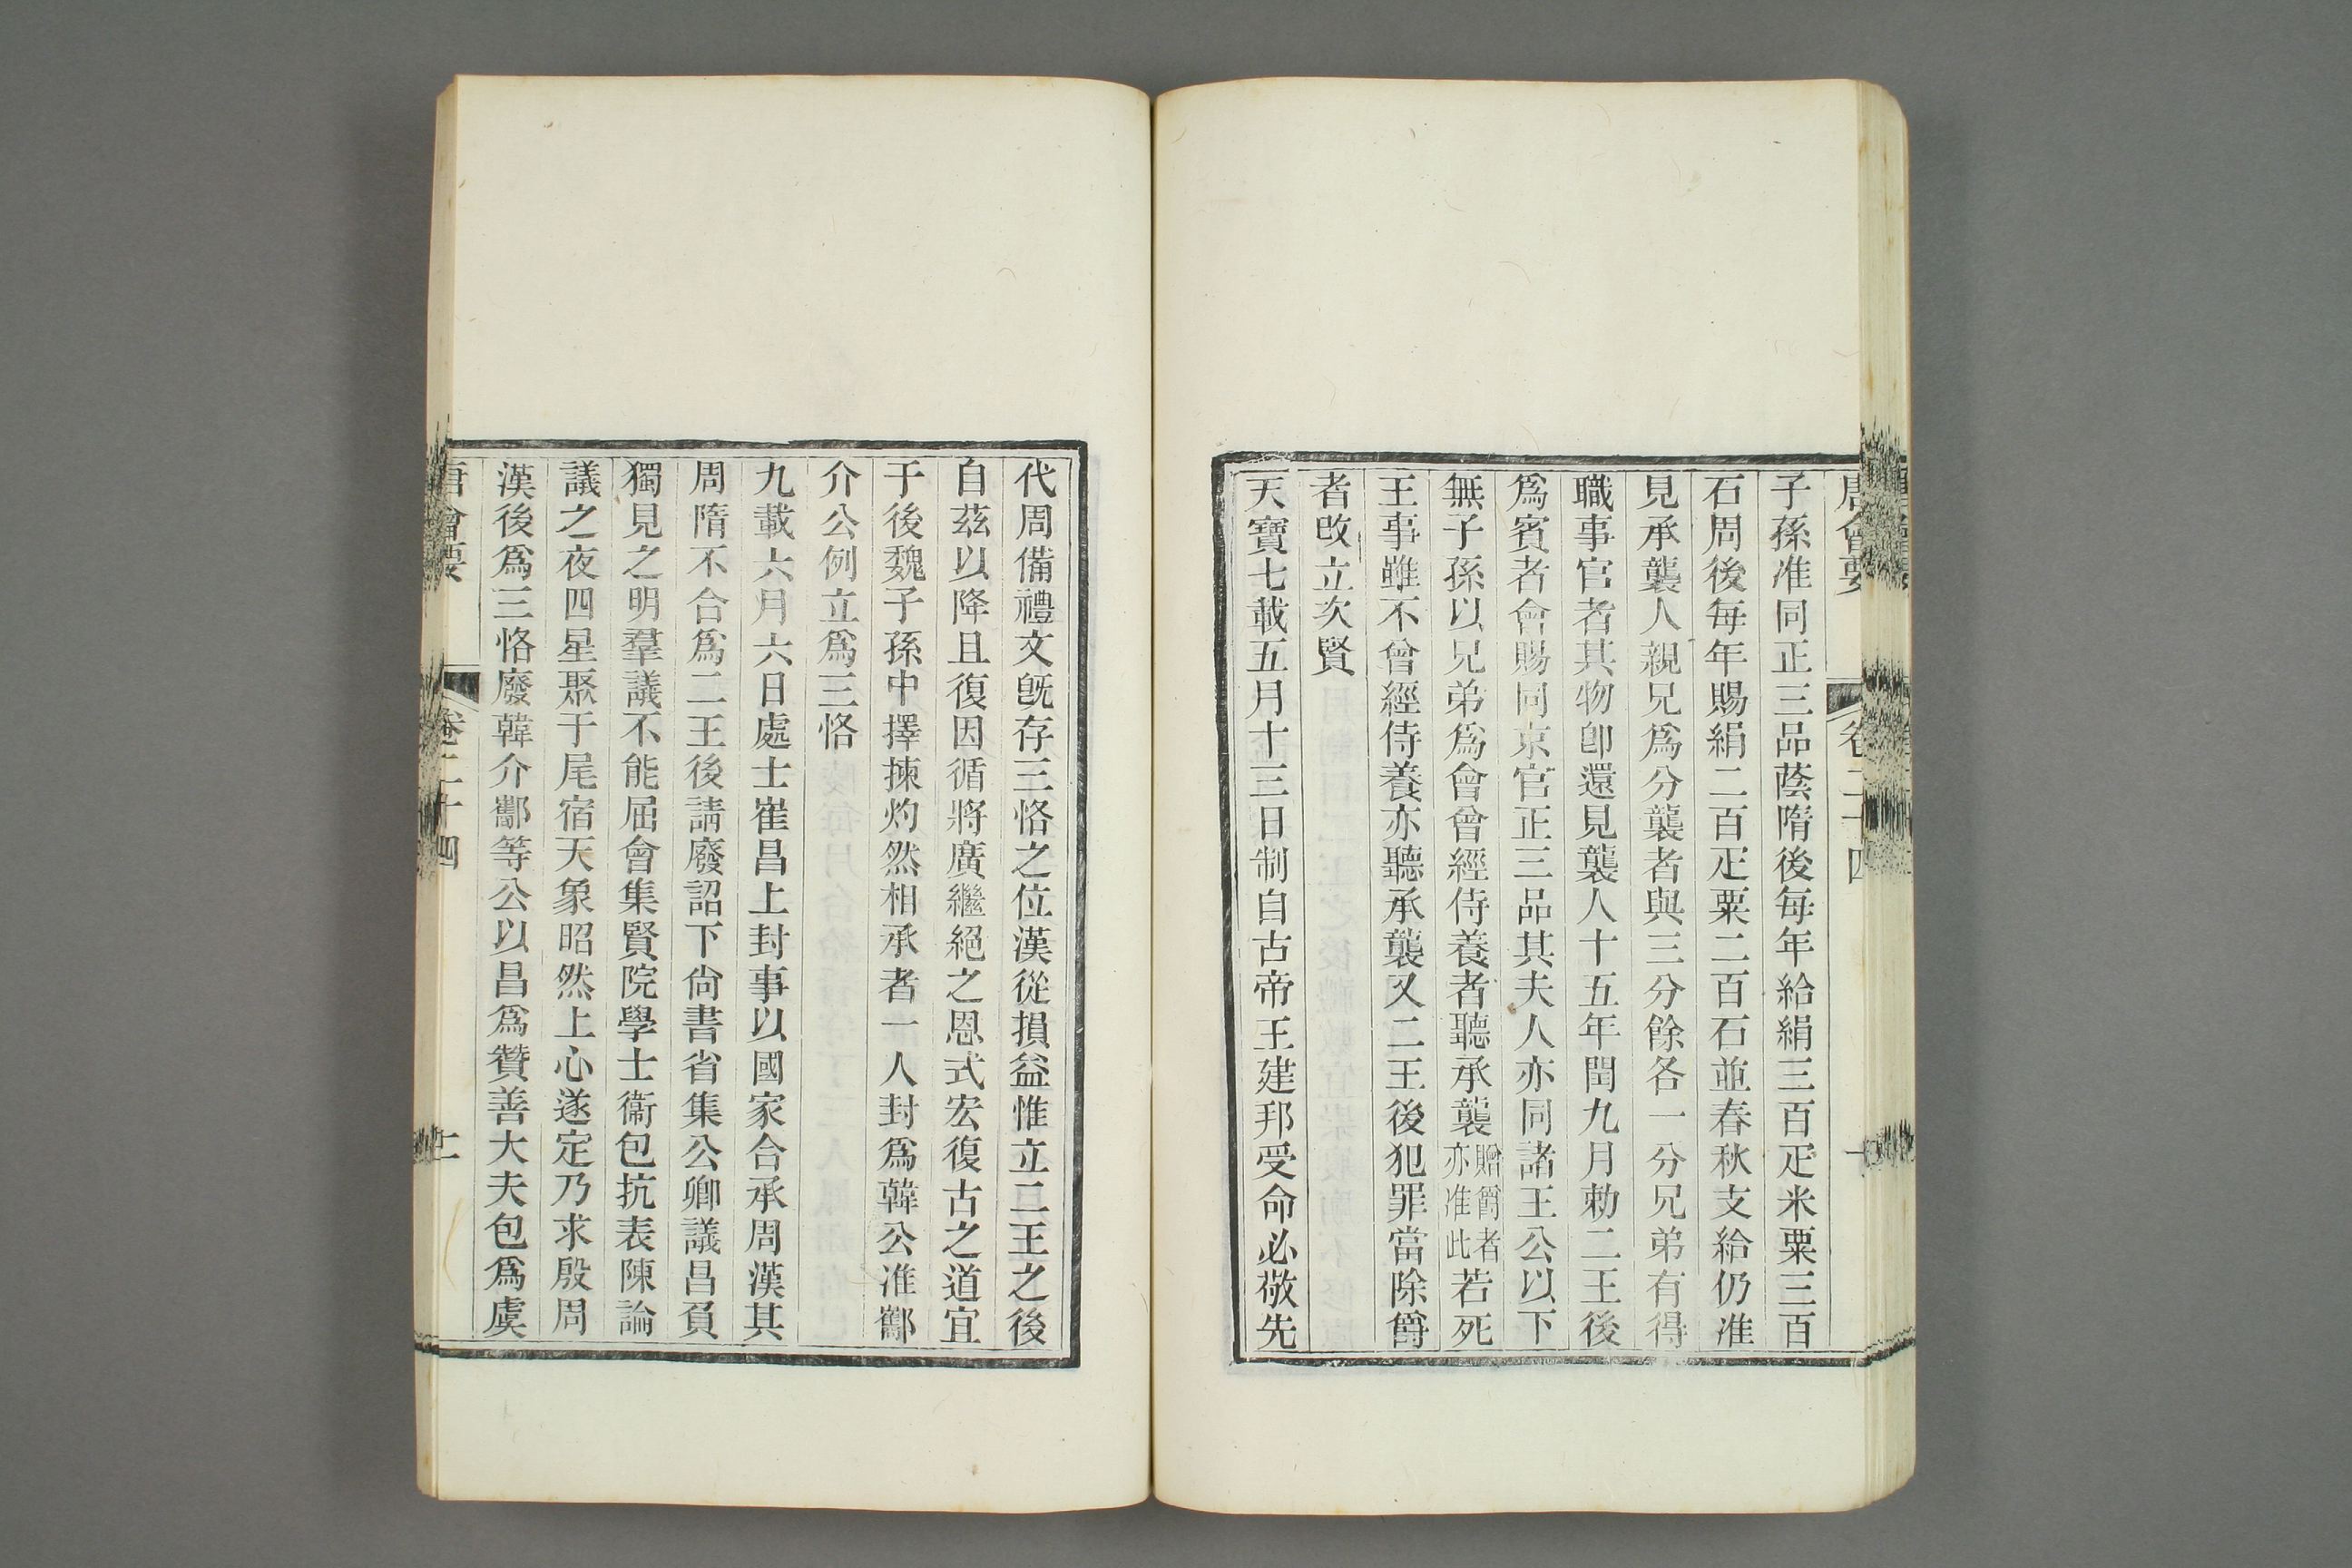 唐會要 卷二十四
子孫准同正三品蔭隋後每年給絹三百疋米粟三百
石周後每年賜絹二百疋粟二百石並春秋支給仍准
見承襲人親兄爲分襲者與三分餘各一分兄弟有得
職事官者其物卽還見襲人十五年閏九月勅二王後
爲賓者會賜同京官正三品其夫人亦同諸王公以下
無子孫以兄弟爲會曾經侍養者聽承襲贈爵者亦准此若死
王事雖不曾經侍養亦聽承襲又二王後犯罪當除爵
者改立次賢
天寶七載五月十三日制自古帝王建邦受命必敬先
代周備禮文旣存三恪之位漢從損益惟立二王之後
自茲以降且復因循將廣繼絕之恩式宏復古之道宜
于後魏子孫中擇揀灼然相承者一人封爲韓公准酅
介公例立爲三恪
九載六月六日處士崔昌上封事以國家合承周漢其
周隋不合爲二王後請廢詔下尙書省集公卿議昌負
獨見之明羣議不能屈會集賢院學士衞包抗表陳論
議之夜四星聚于尾宿天象昭然上心遂定乃求殷周
漢後爲三恪廢韓介酅等公以昌爲贊善大夫包爲虞
唐會要 卷二十四